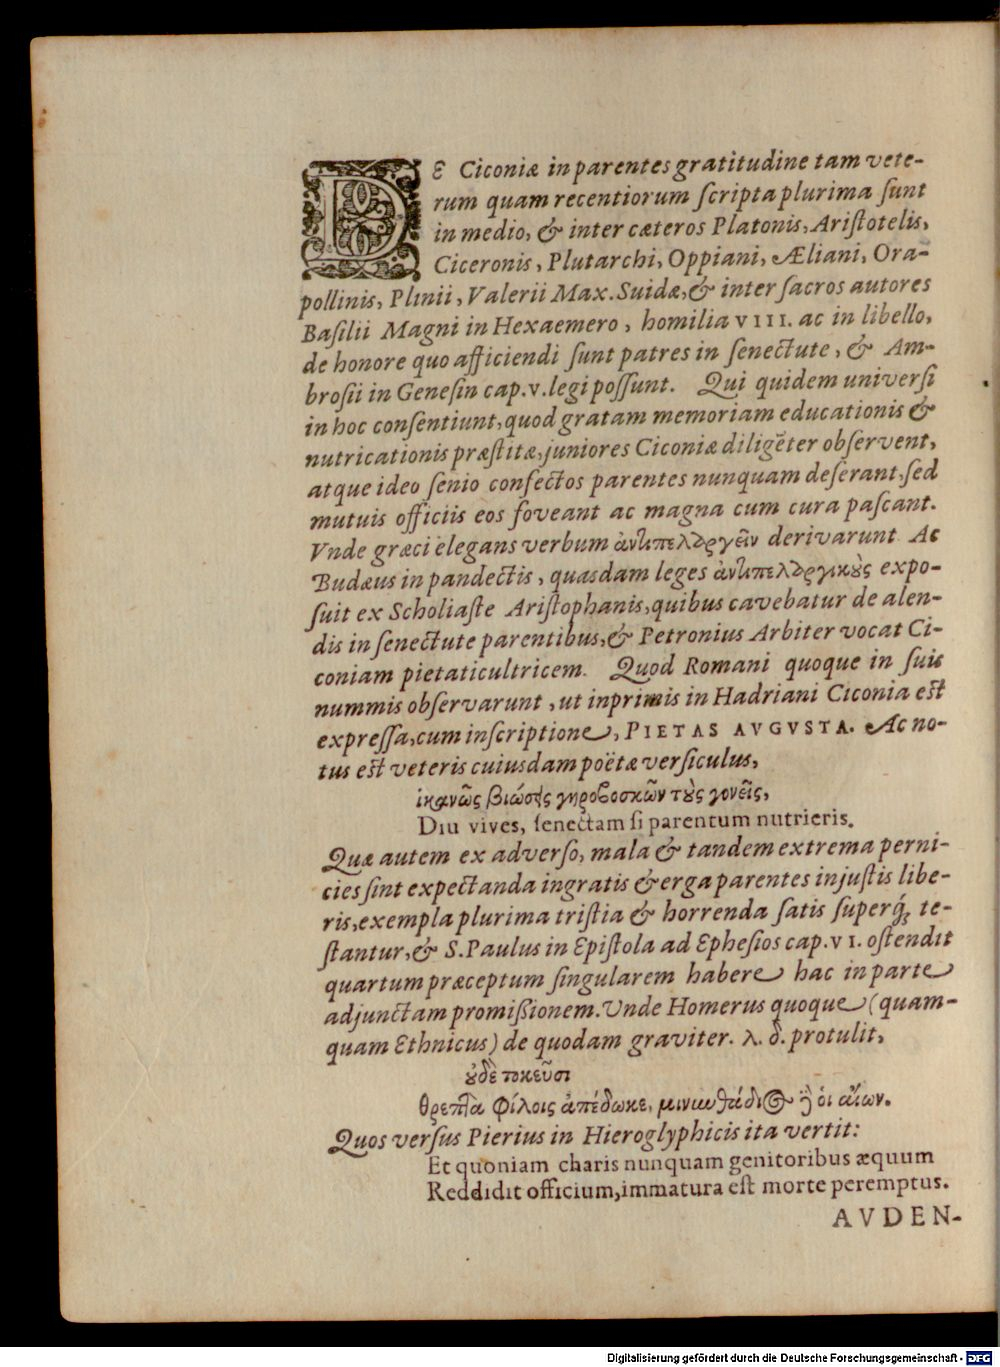 DE Ciconiæ in parentes gratitudine tam vete-
rum quam recentiorum ſcripta plurima ſunt
in medio, & inter cæteros Platonis, Ariſtotelis,
Ciceronis, Plutarchi, Oppiani, Æliani, Ora-
pollinis, Plinii, Valerii Max. Suidæ, & inter ſacros autores
Baſilii Magni in Hexaemero, homilia VIII. ac in libello,
de honore quo afficiendi ſunt patres in ſenectute, & Am-
broſii in Geneſin cap. v. legi poſſunt. Qui quidem univerſi
in hoc conſentiunt, quod gratam memoriam educationis &
nutricationis præſtitæ, juniores Ciconiæ diligēter obſervent,
atque ideo ſenio confectos parentes nunquam deſerant, ſed
mutuis officiis eos foveant ac magna cum cura paſcant.
Vnde græci elegans verbum ἀντιπελαργεῖν derivarunt. Ac
Budæus in pandectis, quasdam leges ἀντιπελαργικοὺς expo-
ſuit ex Scholiaſte Ariſtophanis, quibus cavebatur de alen-
dis in ſenectute parentibus, & Petronius Arbiter vocat Ci-
coniam pietaticultricem. Quod Romani quoque in ſuis
nummis obſervarunt, ut inprimis in Hadriani Ciconia eſt
expreſſa, cum inſcriptione, PIETAS AVGVSTA. Ac no-
tus eſt veteris cuiusdam poëtæ verſiculus,
ἱκανῶς βιώσεις γηροβοσκῶν τοὺς γονεῖς,
Diu vives, ſenectam ſi parentum nutrieris.
Quæ autem ex adverſo, mala & tandem extrema perni-
cies ſint expectanda ingratis & erga parentes injuſtis libe-
ris, exempla plurima triſtia & horrenda ſatis ſuperq́; te-
ſtantur, & S. Paulus in Epiſtola ad Epheſios cap. VI. oſtendit
quartum præceptum ſingularem habere hac in parte
adjunctam promiſſionem. Unde Homerus quoque (quam-
quam Ethnicus) de quodam graviter. λ. δ. protulit,
οὐδὲ τοκεῦσι
θρεπτὰ φίλοις ἀπέδωκε, μινυνθάδιος δέ οἱ αἰών.
Quos verſus Pierius in Hieroglyphicis ita vertit:
Et quoniam charis nunquam genitoribus æquum
Reddidit officium, immatura eſt morte peremptus.
AVDEN-
Digitalisierung gefördert durch die Deutsche Forschungsgemeinschaft - DFG